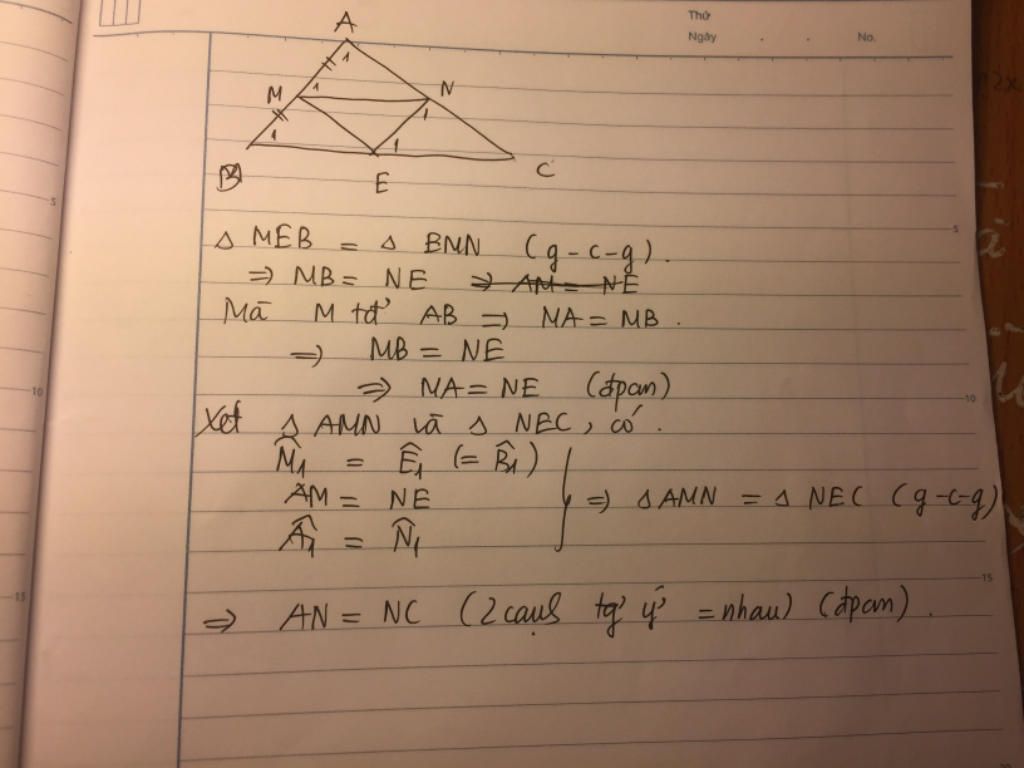 Thứ
Ngày . . No.
A
1
M 1 N
1 1 1
B E C
5
5
10
10
15
15
Δ MEB = Δ BMN (g-c-g).
⇒ MB = NE ⇒ AM = NE
Mà M tđ' AB ⇒ MA = MB.
⇒ MB = NE
⇒ MA = NE (đpcm)
Xét Δ AMN và Δ NEC, có.
M̂₁ = Ê₁ (= B̂₁)
AM = NE
Â₁ = N̂₁
⇒ Δ AMN = Δ NEC (g-c-g)
⇒ AN = NC (2 cạnh tg' ý' = nhau) (đpcm).